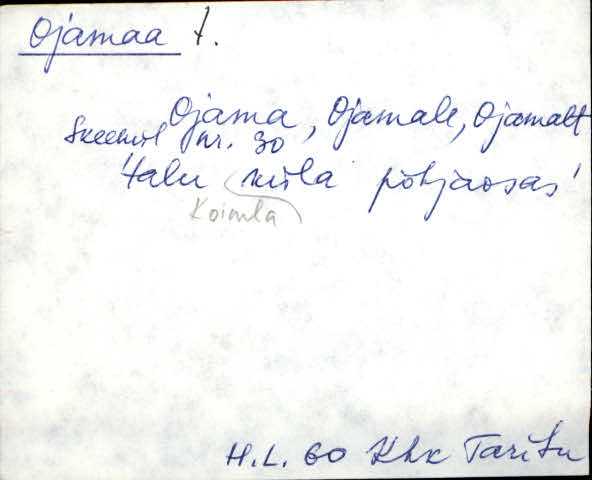 Ojamaa t.
Ojama, Ojamale, Ojamalt
Skeemil nr. 30
'talu küla põhjaosas'
Koimla
H.L. 60 Khk Taritu